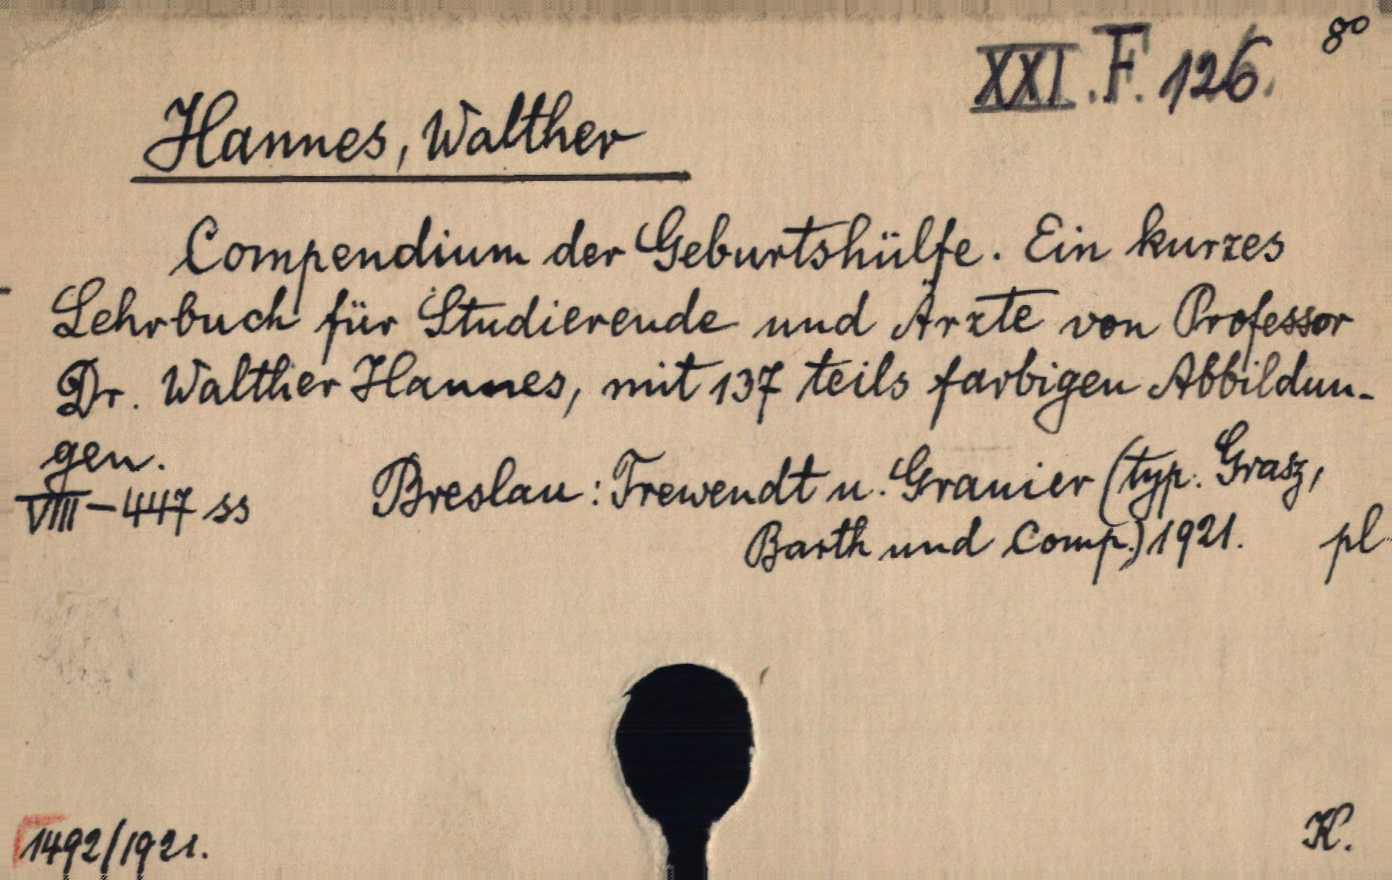 XXI.F.126. 8º
Hannes, Walther
Compendium der Geburtshülfe. Ein kurzes
Lehrbuch für Studierende und Ärzte von Professor
Dr. Walther Hannes, mit 137 teils farbigen Abbildun-
gen.
VIII-447 ss Breslau: Trewendt u. Granier (typ. Grasz,
Barth und Comp.) 1921. pl
1492/1921. K.